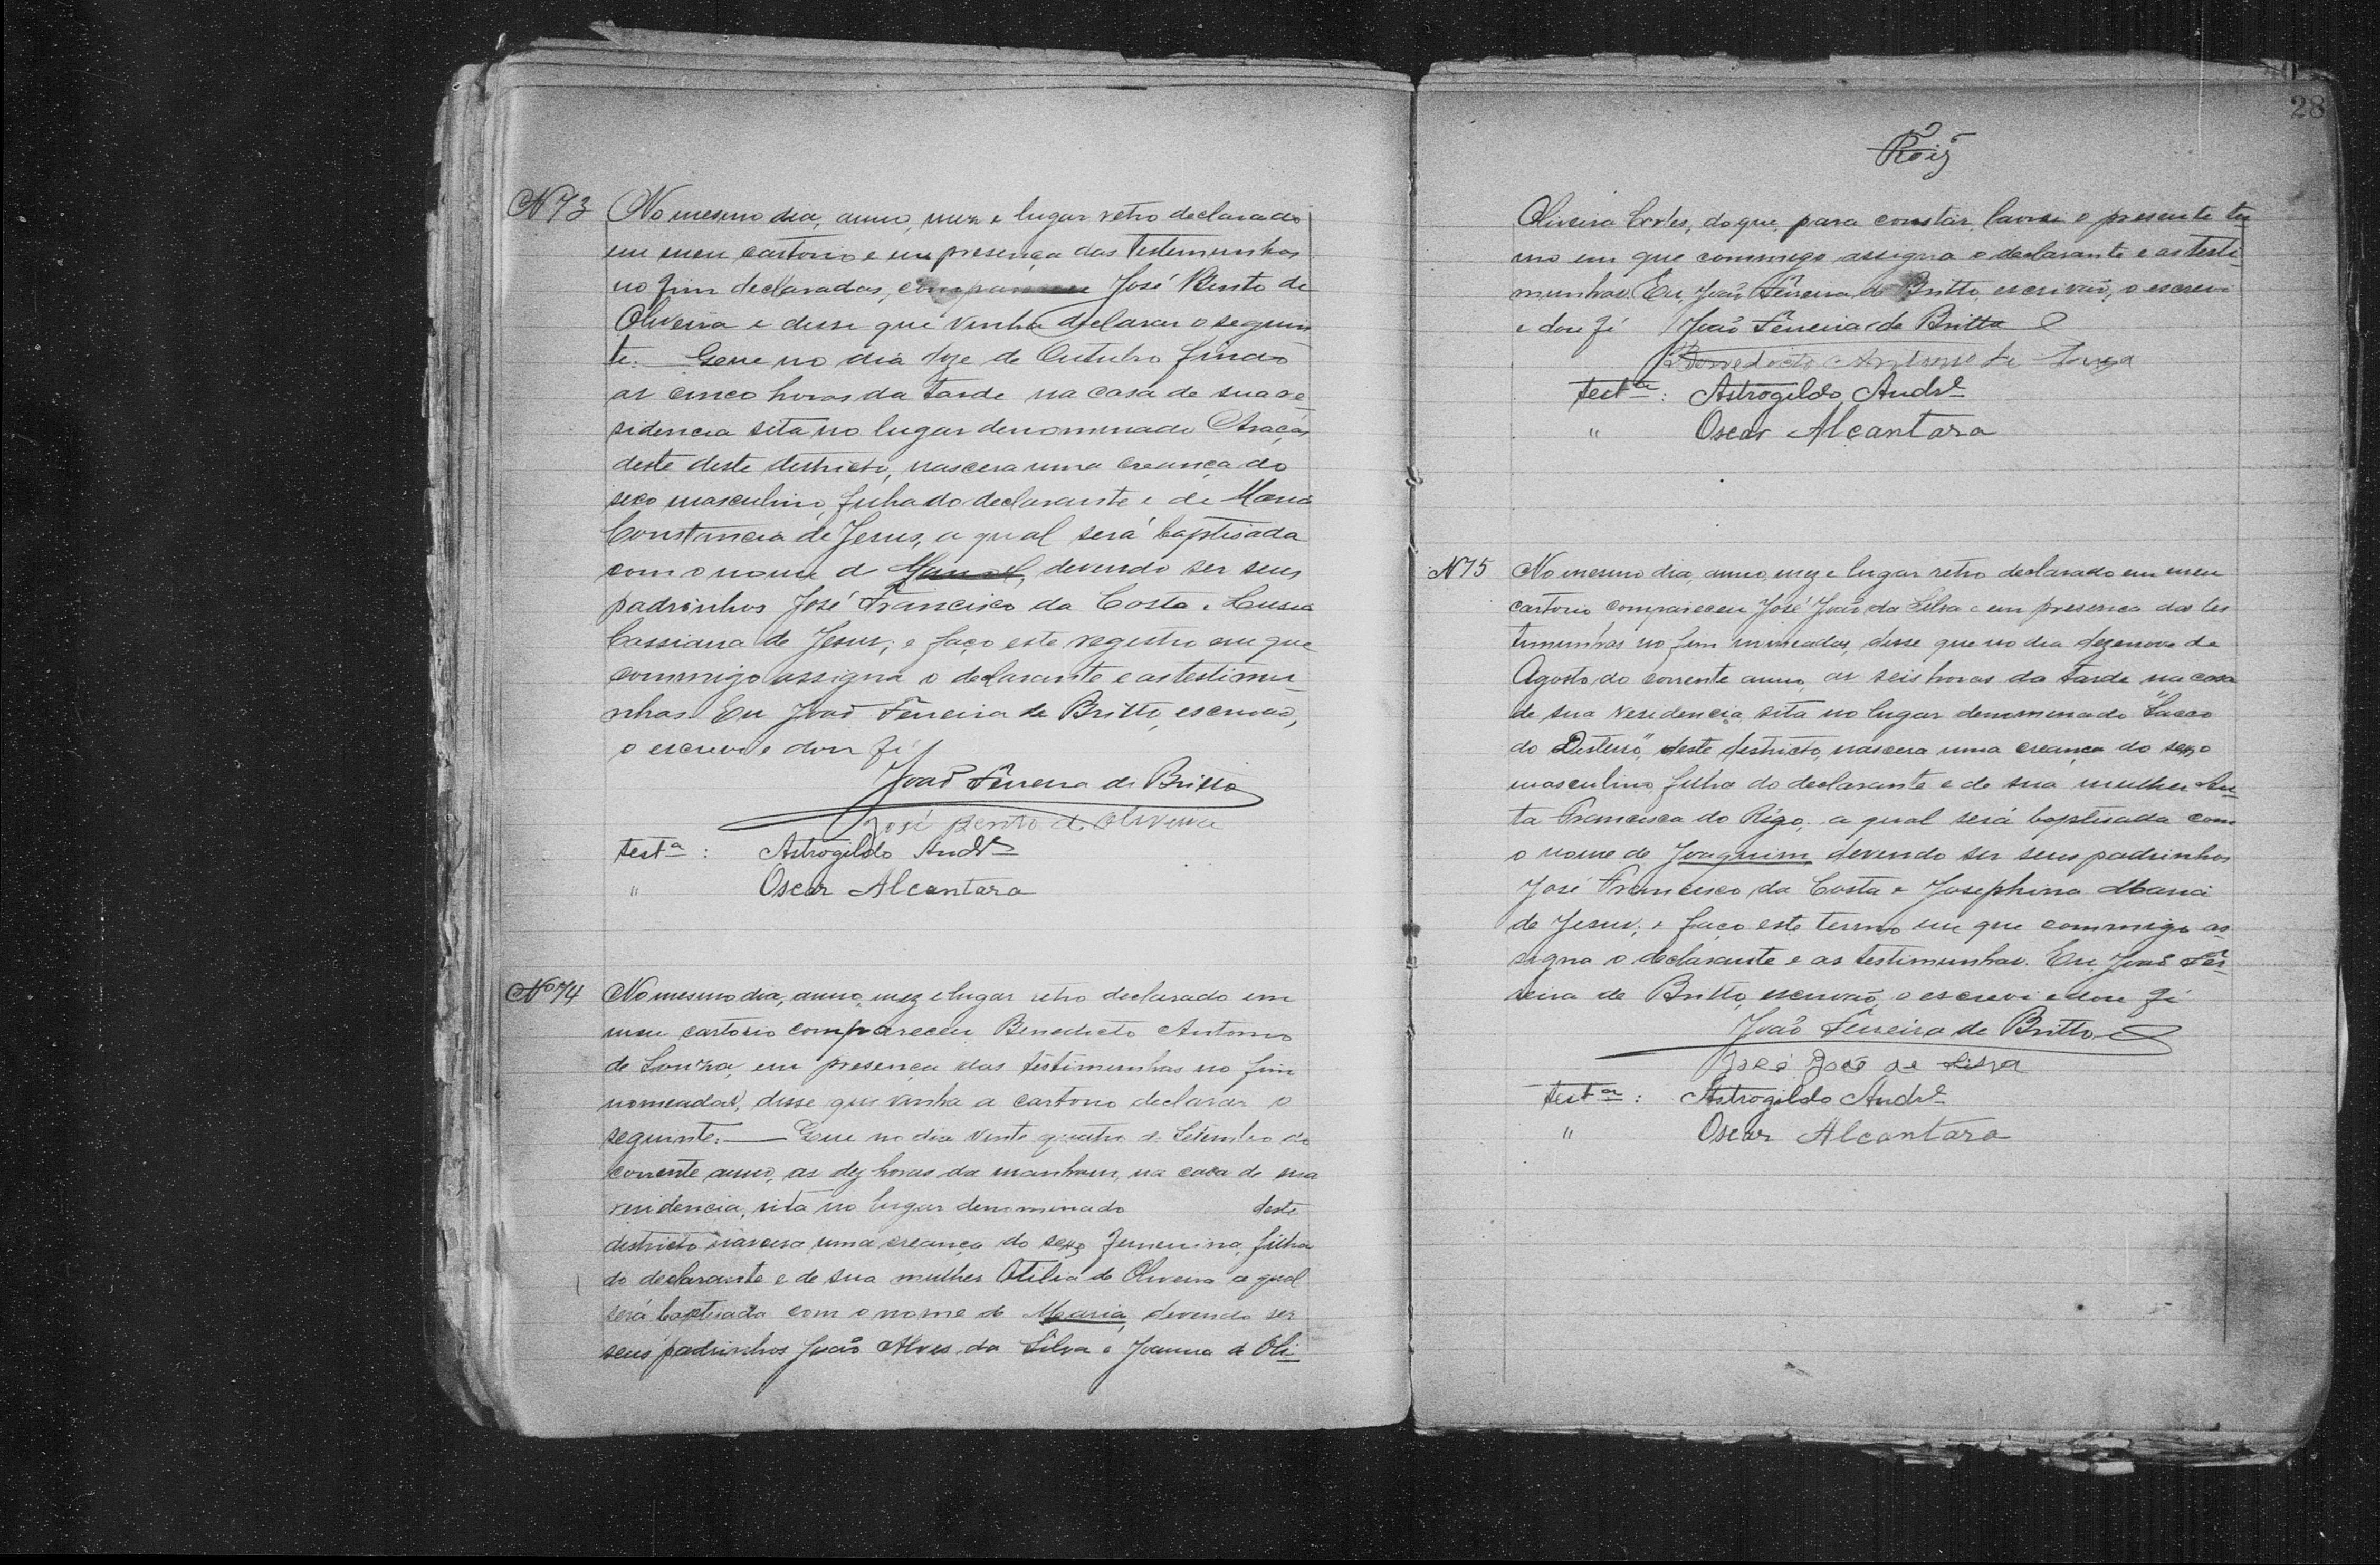 N 73
No mesmo dia, anno, mez e lugar retro declarado
em meu cartorio e em presença das testemunhas
no fim declaradas, compareceu José Bento de
Oliveira e disse que vinha declarar o seguin
te: — Que no dia doze de Outubro findo
as cinco horas da tarde na casa de sua re
sidencia sita no lugar denominado Araçás
deste deste districto, nascera uma creança do
sexo masculino, filha do declarante e de Maria
Constancia de Jesus, a qual será baptisada
com o nome de Manoel, devendo ser seus
padrinhos José Francisco da Costa e Lusia
Cassiana de Jesus; e faço este registro em que
commigo assigna o declarante e as testimu
nhas. Eu João Ferreira de Britto, escrivão,
o escrevi e dou fé
João Ferreira de Britto
José Bento de Oliveira
testa: Astrogildo Andre
" Oscar Alcantara
No 74
No mesmo dia, anno, mez e lugar retro declarado em
meu cartorio compareceu Benedicto Antonio
de Souza, em presença das testimunhas no fim
nomeadas, disse que vinha a cartorio declarar o
seguinte: — Que no dia vinte quatro de Setembro do
corrente anno, as dez horas da manham, na casa de sua
residencia, sita no lugar denominado deste
districto nascera uma creança do sexo femenino, filha
do declarante e de sua mulher Otilia de Oliveira a qual
será baptisada com o nome de Maria, devendo ser
seus padrinhos João Alves da Silva e Joanna de Oli
28
Oliveira Cortes, do que, para constar, lavrei o presente ter
mo em que commigo assigna o declarante e as testi
munhas. Eu, João Ferreira de Britto, escrivão, o escrevi
e dou fé João Ferreira de Britto
Benedicto Antonio de Souza
testa: Astrogildo Andre
" Oscar Alcantara
N 75
No mesmo dia, anno, mez e lugar retro declarado em meu
cartorio compareceu José João da Silva e em presença das tes
timunhas no fim nomeadas, disse que no dia dezenove de
Agosto do corrente anno, as seis horas da tarde na casa
de sua residencia sita no lugar denominado "Sacco
do Desterro", deste districto, nascera uma creança do sexo
masculino, filha do declarante e de sua mulher
Francisca do Rigo, a qual será baptisada com
o nome de Joaquim devendo ser seus padrinhos
José Francisco da Costa e Josephina Maria
de Jesus; e faço este termo em que commigo as
signa o declarante e as testimunhas. Eu João Fer
reira de Britto, escrivão, o escrevi e dou fé
João Ferreira de Britto
José João da Silva
testa: Astrogildo Andre
" Oscar Alcantara